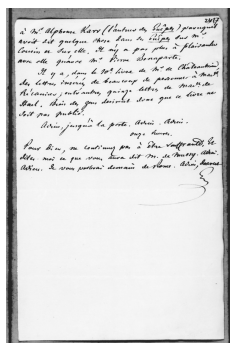 à Mr Alphonse Karr (l'auteur des Guêpes) parcequ'il
avait dit quelque chose dans les Guêpes sur Mr
Cousin et sur elle. Il n'y a pas plus à plaisanter
avec elle qu'avec Mr Pierre Bonaparte.
Il y a, dans le 10e livre de Mr de Chateaubriand
des lettres de beaucoup de personnes à Made
Récamier; entr'autres, quinze lettres de Made de
Stael. Bien des gens désirent donc que ce livre ne
soit pas publié.
Adieu, jusqu'à la poste. Adieu. Adieu.
onze heures.
Mon Dieu, ne continuez pas à être souffrante. Et
dites moi ce que vous aura dit M. de Mussy. Adieu.
Adieu. Je vous parlerai demain de Rome. Adieu,
G